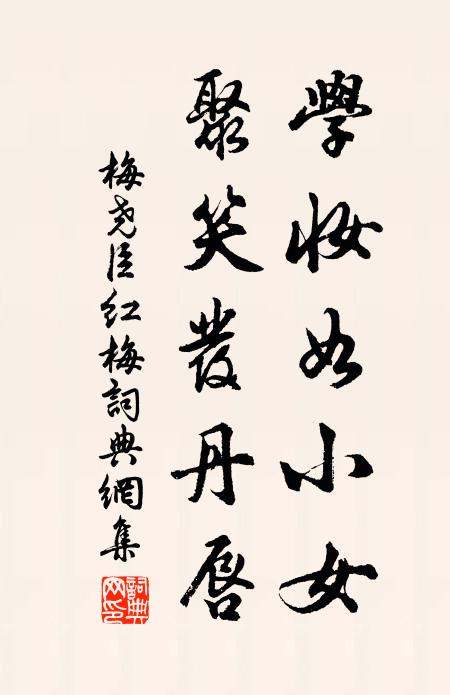 學妝如小女
聚笑發丹唇
梅堯臣紅梅詞典網集
詞典网印